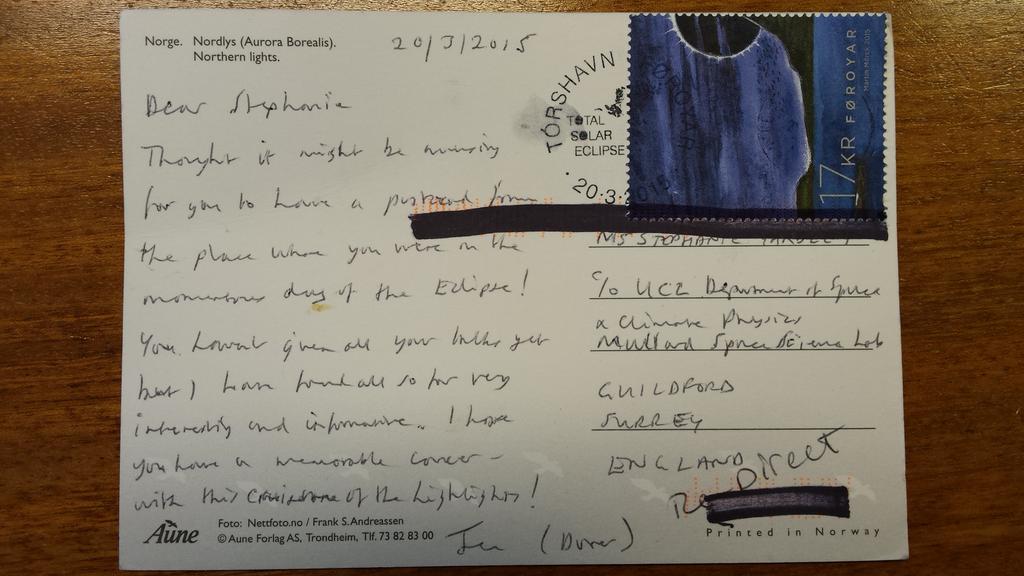 Norge. Nordlys (Aurora Borealis).
Northern lights.
20/3/2015
Dear Stephanie
Thought it might be amusing
for you to have a postcard from
the place where you were on the
momentous day of the Eclipse!
You haven't given all your talks yet
but I have found all so far very
interesting and informative. I hope
you have a memorable career -
with this one of the highlights!
(Dover)
TÓRSHAVN
TOTAL
SOLAR
ECLIPSE
20.3.2015
FØROYAR
17 KR FØROYAR
MS STEPHANIE
c/o UCL Department of Space
& Climate Physics
Mullard Space Science Lab
GUILDFORD
SURREY
ENGLAND
Re Direct
Printed in Norway
Aune
Foto: Nettfoto.no / Frank S. Andreassen
© Aune Forlag AS, Trondheim, Tlf. 73 82 83 00